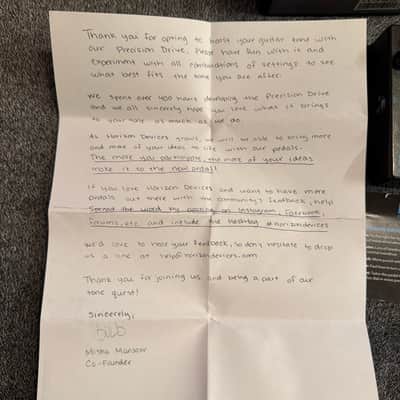 Thank you for opting to boost your guitar tone with
our Precision Drive. Please have fun with it and
experiment with all combinations of settings to see
what best fits the tone you are after.
We spent over 400 hours developing the Precision Drive
and we all sincerely hope you love what it brings
to your tone as much as we do.
As Horizon Devices grows, we will be able to bring more
and more of your ideas to life with our pedals.
The more you participate, the more of your ideas
make it to the new pedal!
If you love Horizon Devices and want to have more
pedals out there with the community's feedback, help
spread the word by posting on Instagram, Facebook,
forums, etc. and include the hashtag #horizondevices
We'd love to hear your feedback, so don't hesitate to drop
us a line at help@horizondevices.com
Thank you for joining us and being a part of our
tone quest!
Sincerely,
Misha Mansoor
Co-Founder